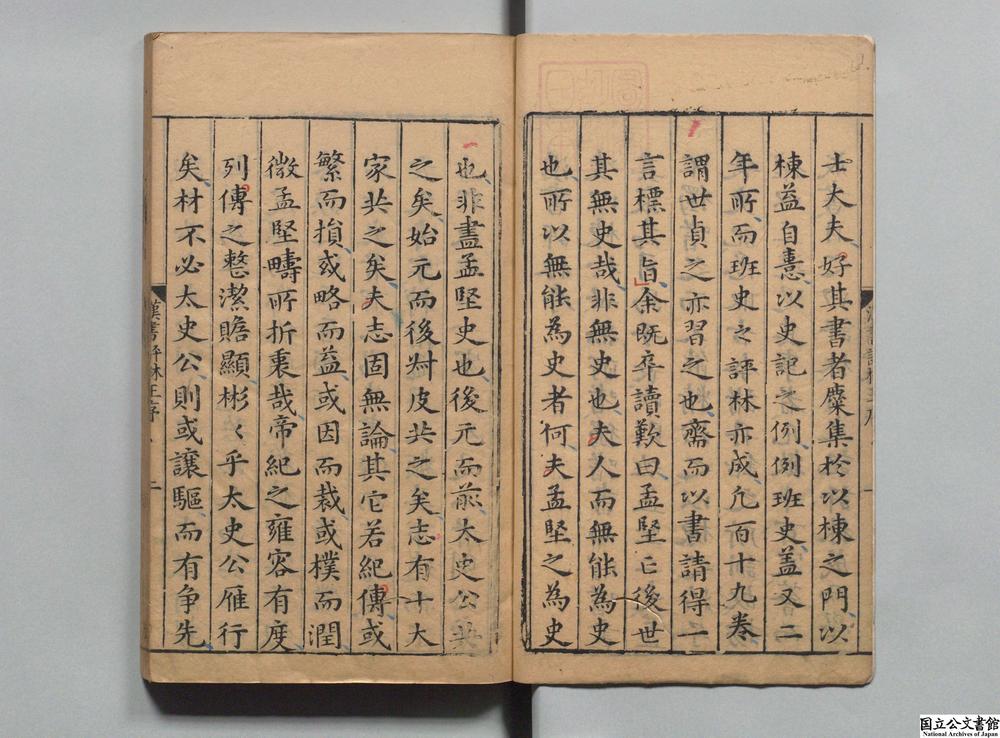 士大夫好其書者麇集於以棟之門以
棟益自憙以史記之例例班史盖又二
年所而班史之評林亦成凢百十九卷
謂世貞之亦習之也齎而以書請得一
言標其旨余既卒讀歎曰孟堅亡後世
其無史哉非無史也夫人而無能為史
也所以無能為史者何夫孟堅之為史
也非盡孟堅史也後元而前太史公共
之矣始元而後叔皮共之矣志有十大
家共之矣夫志固無論其它若紀傳或
繁而損或略而益或因而裁或樸而潤
微孟堅疇所折衷哉帝紀之雍容有度
列傳之整潔贍顯彬〻乎太史公雁行
矣材不必太史公則或讓驅而有争先
漢書評林王序
二
国立公文書館
National Archives of Japan